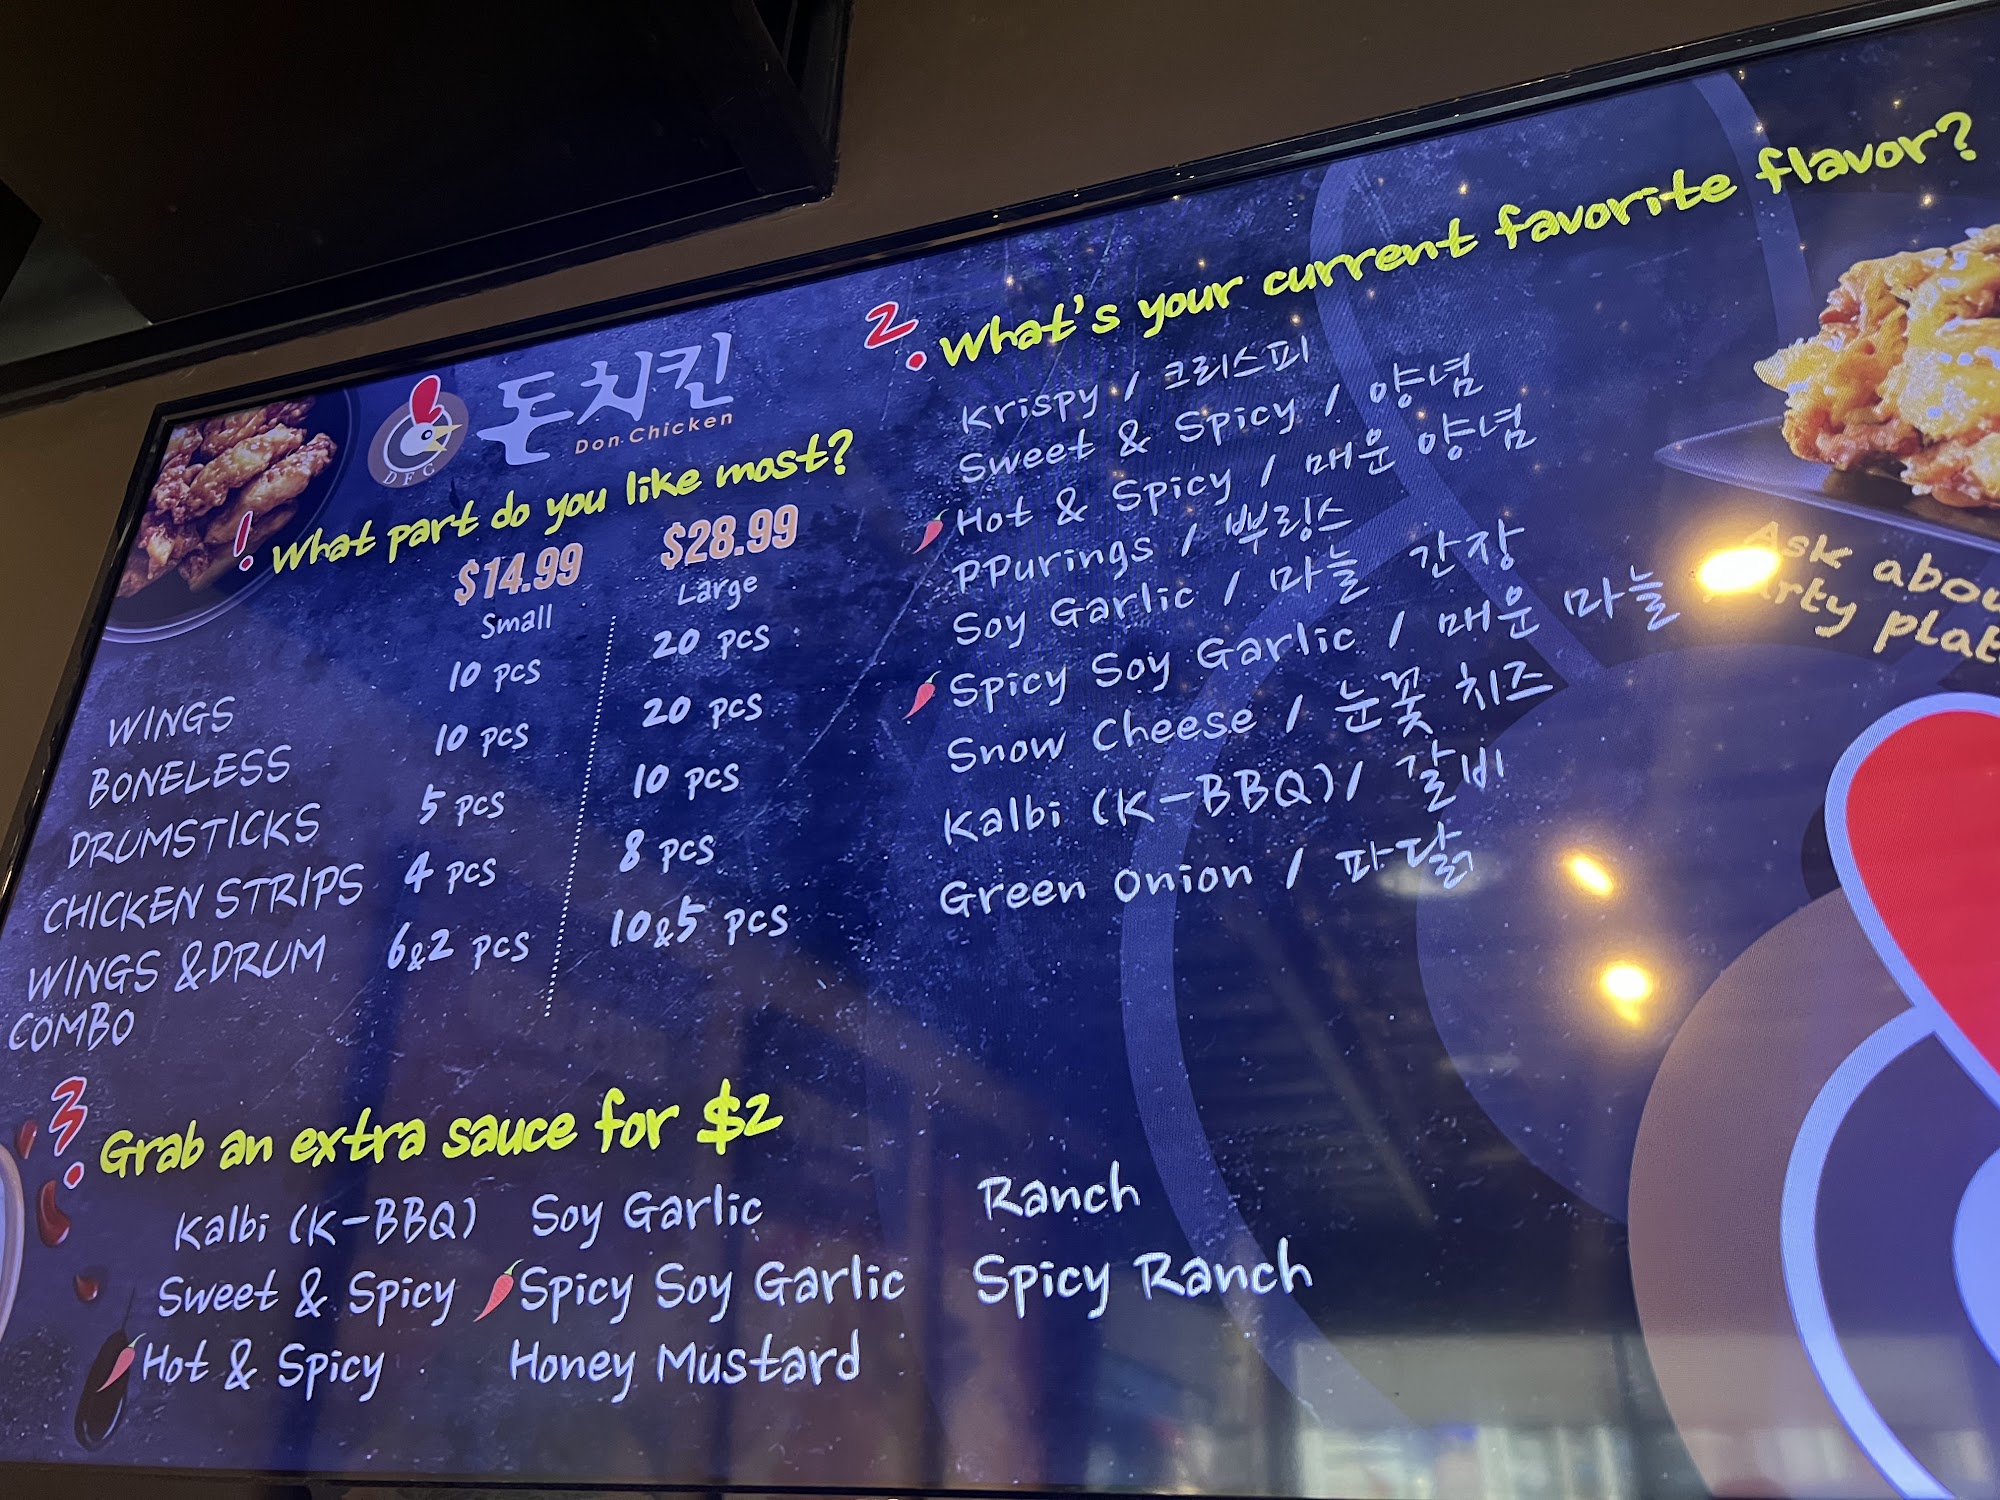 돈치킨
Don Chicken
DFC
1. What part do you like most?
$14.99 $28.99
Small Large
WINGS 10 pcs 20 pcs
BONELESS 10 pcs 20 pcs
DRUMSTICKS 5 pcs 10 pcs
CHICKEN STRIPS 4 pcs 8 pcs
WINGS & DRUM 6&2 pcs 10&5 pcs
COMBO
2. What's your current favorite flavor?
Krispy / 크리스피
Sweet & Spicy / 양념
Hot & Spicy / 매운 양념
PPurings / 뿌링스
Soy Garlic / 마늘 간장
Spicy Soy Garlic / 매운 마늘
Snow Cheese / 눈꽃 치즈
Kalbi (K-BBQ) / 갈비
Green Onion / 파닭
Ask
3. Grab an extra sauce for $2
Kalbi (K-BBQ) Soy Garlic Ranch
Sweet & Spicy Spicy Soy Garlic Spicy Ranch
Hot & Spicy Honey Mustard